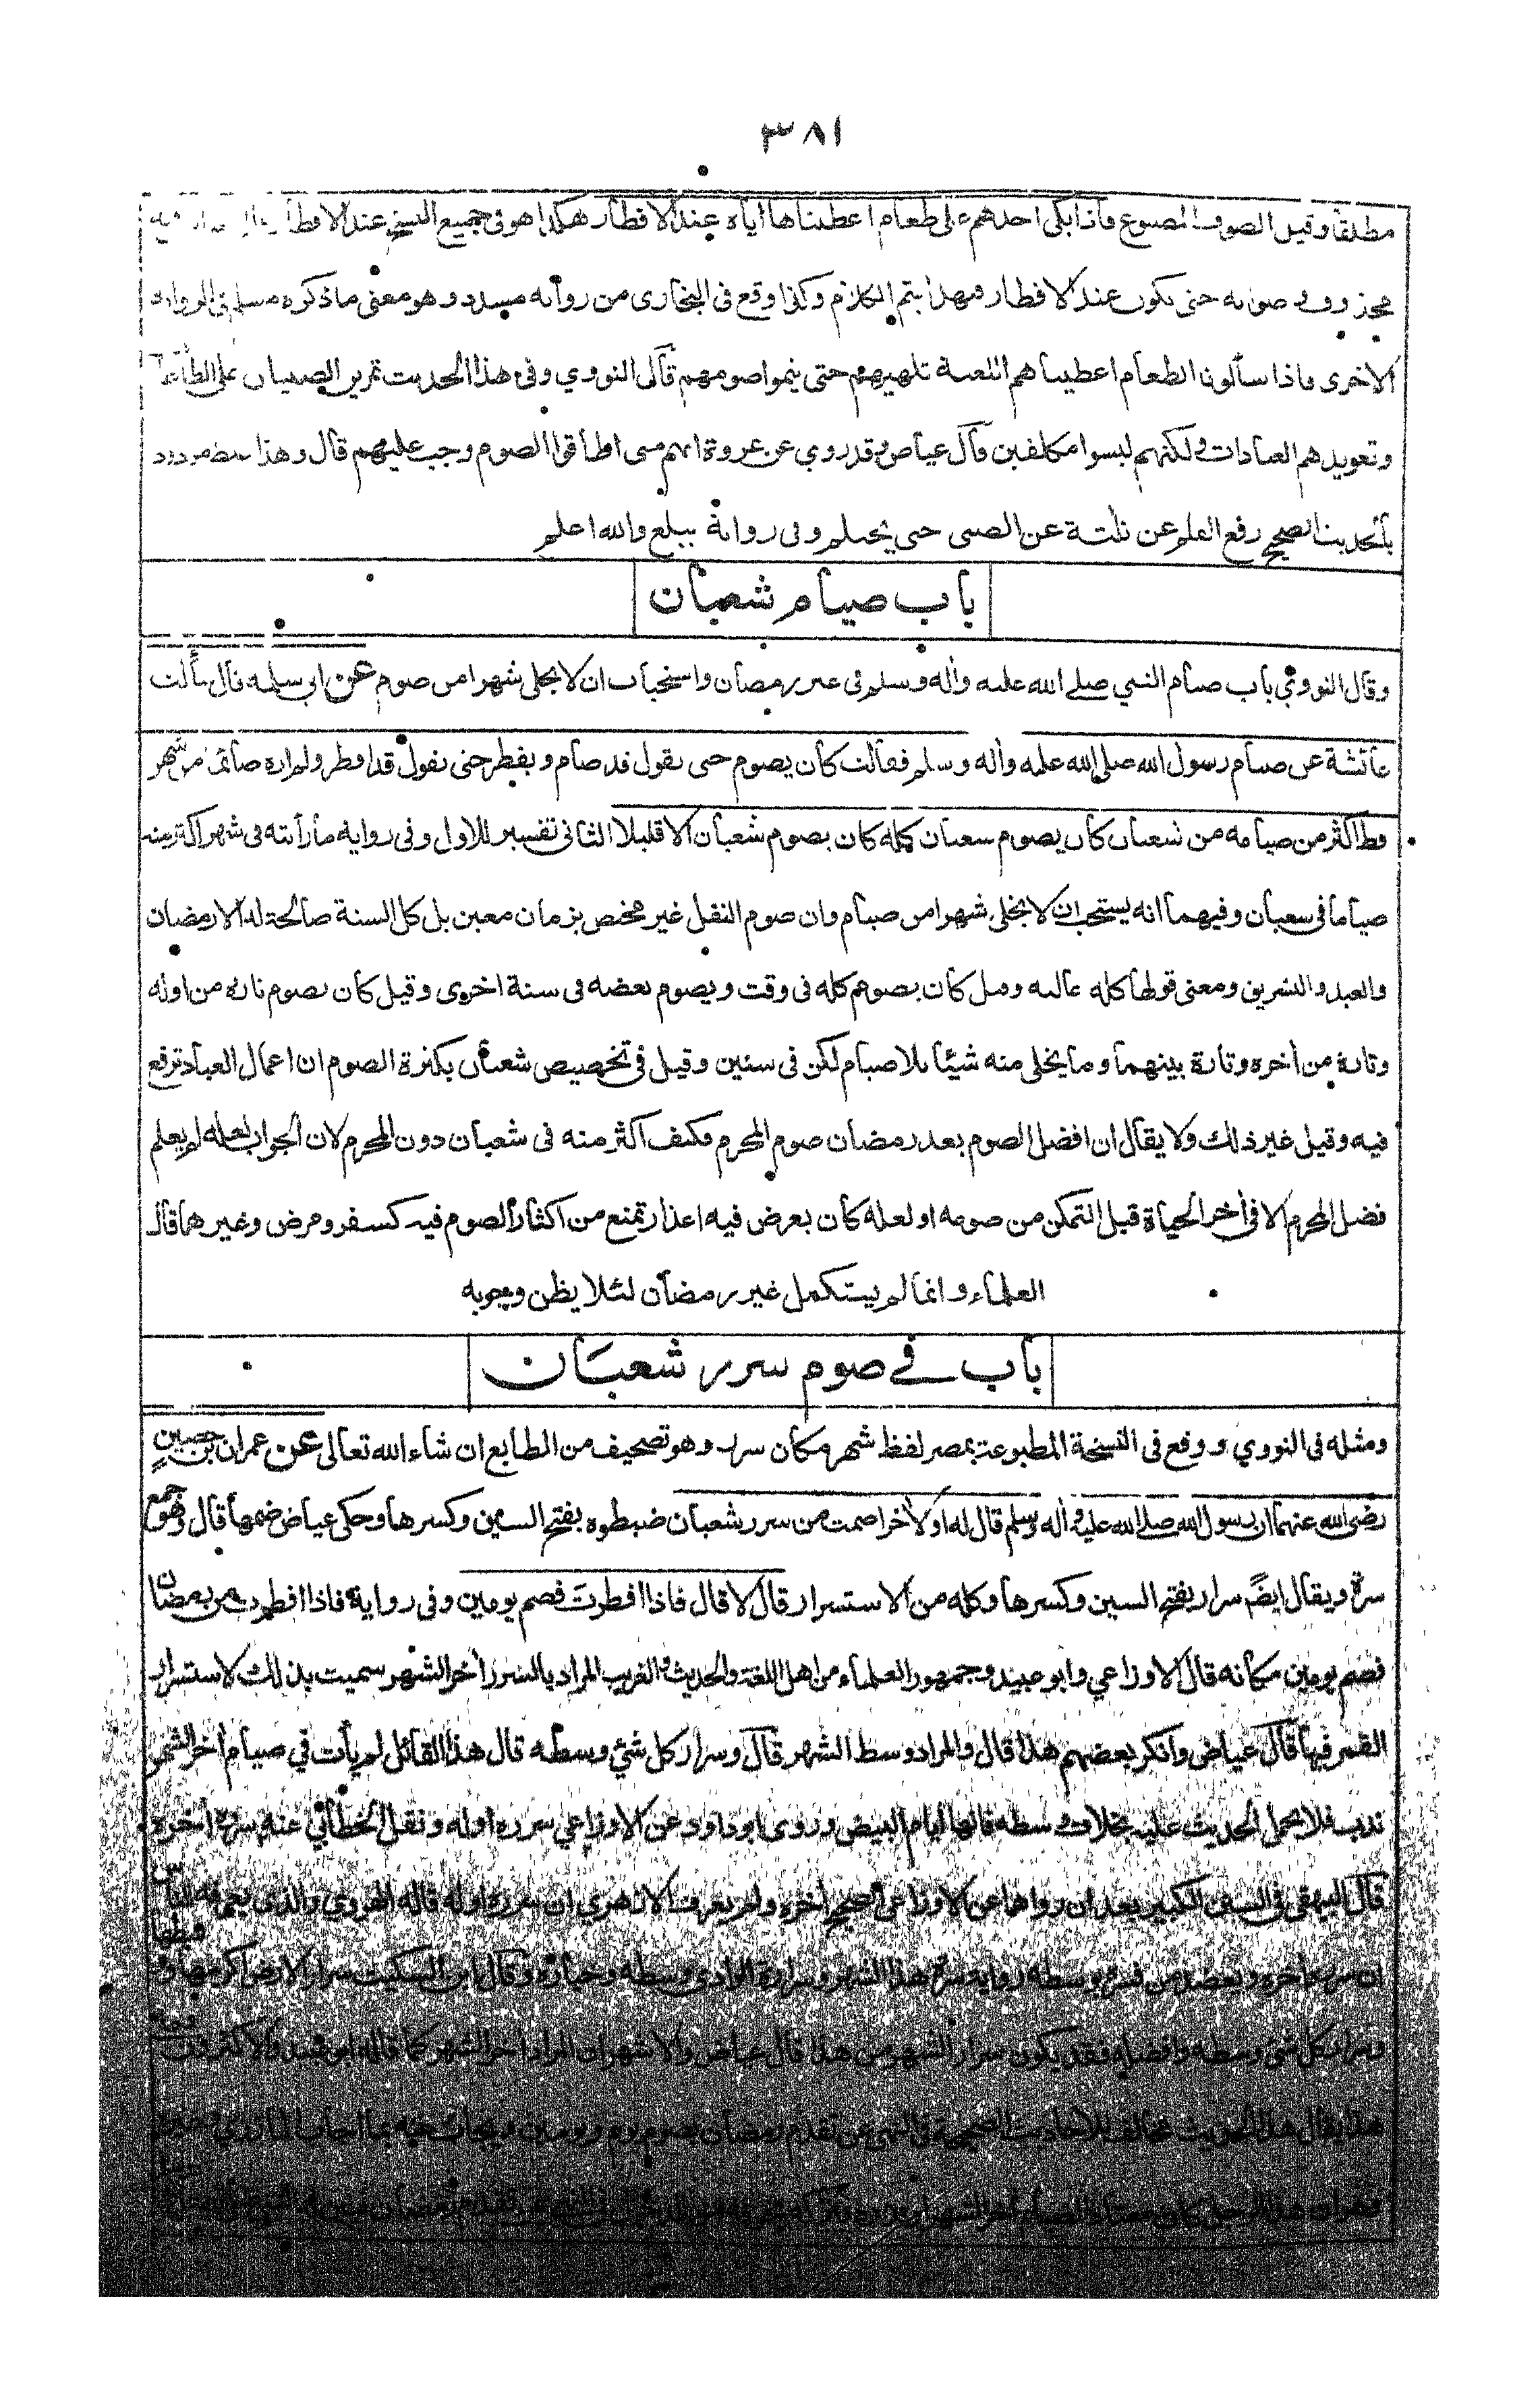 ٣٨١
مطلقا وقيل الصوف المصبوغ فاذا بكى احدهم على طعام اعطيناها اياه عند الافطار هكذا هو فى جميع النسخ عند الافطار
صوابه حتى يكون عند الافطار فبهذا يتم الكلام وكذا وقع فى البخارى من رواية مسدد وهو معنى ما ذكره مسلم فى الرواية
الاخرى فاذا سألونا الطعام اعطيناهم اللعبة تلهيهم حتى يتموا صومهم قال النووي وفى هذا الحديث تمرين الصبيان على الطاعات
وتعويدهم العبادات ولكنهم ليسوا مكلفين قال عياض وقد روي عن عروة انهم متى اطاقوا الصوم وجب عليهم قال وهذا غلط مردود
بالحديث الصحيح رفع القلم عن ثلثة عن الصبى حتى يحتلم وفى رواية يبلغ والله اعلم
باب صيام شعبان
وقال النووي باب صيام النبي صلى الله عليه واٰله وسلم فى غير رمضان واستحباب ان لا يخلى شهرا من صوم عن ابى سلمة قال سألت
عائشة عن صيام رسول الله صلى الله عليه واٰله وسلم فقالت كان يصوم حتى نقول قد صام ويفطر حتى نقول قد افطر ولم اره صائما من شهر
قط اكثر من صيامه من شعبان كان يصوم شعبان كله كان يصوم شعبان الا قليلا الثانى تفسير للاول وفى رواية ما رأيته فى شهر اكثر منه
صياما فى شعبان وفيهما انه يستحب ان لا يخلى شهرا من صيام وان صوم النفل غير مختص بزمان معين بل كل السنة صالحة له الا رمضان
والعيد والتشريق ومعنى قولها كله غالبه وقيل كان يصومه كله فى وقت ويصوم بعضه فى سنة اخرى وقيل كان يصوم تارة من اوله
وتارة من اٰخره وتارة بينهما وما يخلى منه شيئا بلا صيام لكن فى سنين وقيل فى تخصيص شعبان بكثرة الصوم ان اعمال العباد ترفع
فيه وقيل غير ذلك ولا يقال ان افضل الصوم بعد رمضان صوم المحرم فكيف اكثر منه فى شعبان دون المحرم لان الجواب لعله لم يعلم
فضل المحرم الا فى اٰخر الحياة قبل التمكن من صومه او لعله كان يعرض فيه اعذار تمنع من اكثار الصوم فيه كسفر ومرض وغيرهما قال
العلماء وانما لم يستكمل غير رمضان لئلا يظن وجوبه
باب فى صوم سرر شعبان
ومثله فى النووي ووقع فى النسخة المطبوعة بمصر لفظ شهر مكان سرر وهو تصحيف من الطابع ان شاء الله تعالى عن عمران بن حصين
رضى الله عنهما ان رسول الله صلى الله عليه واٰله وسلم قال له او لاٰخر اصمت من سرر شعبان ضبطوه بفتح السين وكسرها وحكى عياض ضمها قال وهو جمع
سرة ويقال ايضا سرار بفتح السين وكسرها وكله من الاستسرار قال لا قال فاذا افطرت فصم يومين وفى رواية فاذا افطرت من رمضان
فصم يومين مكانه قال الاوزاعي وابو عبيد وجمهور العلماء من اهل اللغة والحديث والغريب المراد بالسرر اٰخر الشهر سميت بذلك لاستسرار
القمر فيها قال عياض وانكر بعضهم هذا قال والمراد وسط الشهر قال وسرار كل شئ وسطه قال هذا القائل لم يأت في صيام اٰخر الشهر
ندب فلا يحمل الحديث عليه بخلاف وسطه فانها ايام البيض وروى ابو داود عن الاوزاعي سرره اوله ونقل الخطابي عنه سرره اٰخره
قال البيهقى فى السنن الكبير بعد ان رواهما عن الاوزاعى الصحيح اٰخره ولم يعرف الازهري ان سرره اوله قاله الهروي والذى يعرفه الناس
ان سرره اٰخره ويعضد من فسره بوسطه رواية سرة هذا الشهر وسرارة الوادى وسطه وخياره وقال ابن السكيت سرار الارض اكرمها
وسرار كل شئ وسطه وافضله فقد يكون سرار الشهر من هذا قال عياض والاشهر ان المراد اٰخر الشهر كما قاله ابو عبيد والاكثرون
هذا يقال هذا الحديث مخالف للاحاديث الصحيحة فى النهى عن تقدم رمضان بصوم يوم ويومين ويجاب عنه بما اجاب المازري وغيره